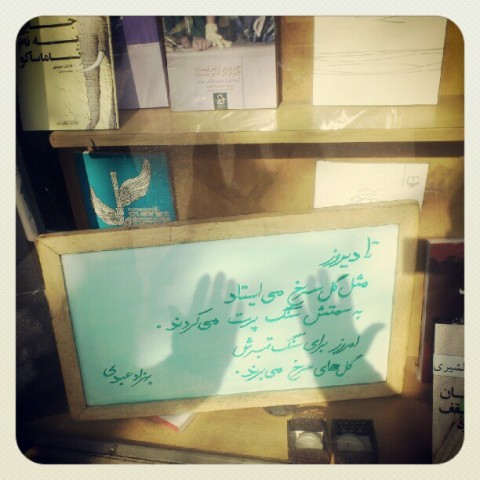 به نام
تا دیروز
مثل گل سرخ می‌ایستاد
به سمتش سنگ پرت می‌کردند.
امروز برای سنگ قبرش
گل‌های سرخ می‌برند.
بهزاد عبدی